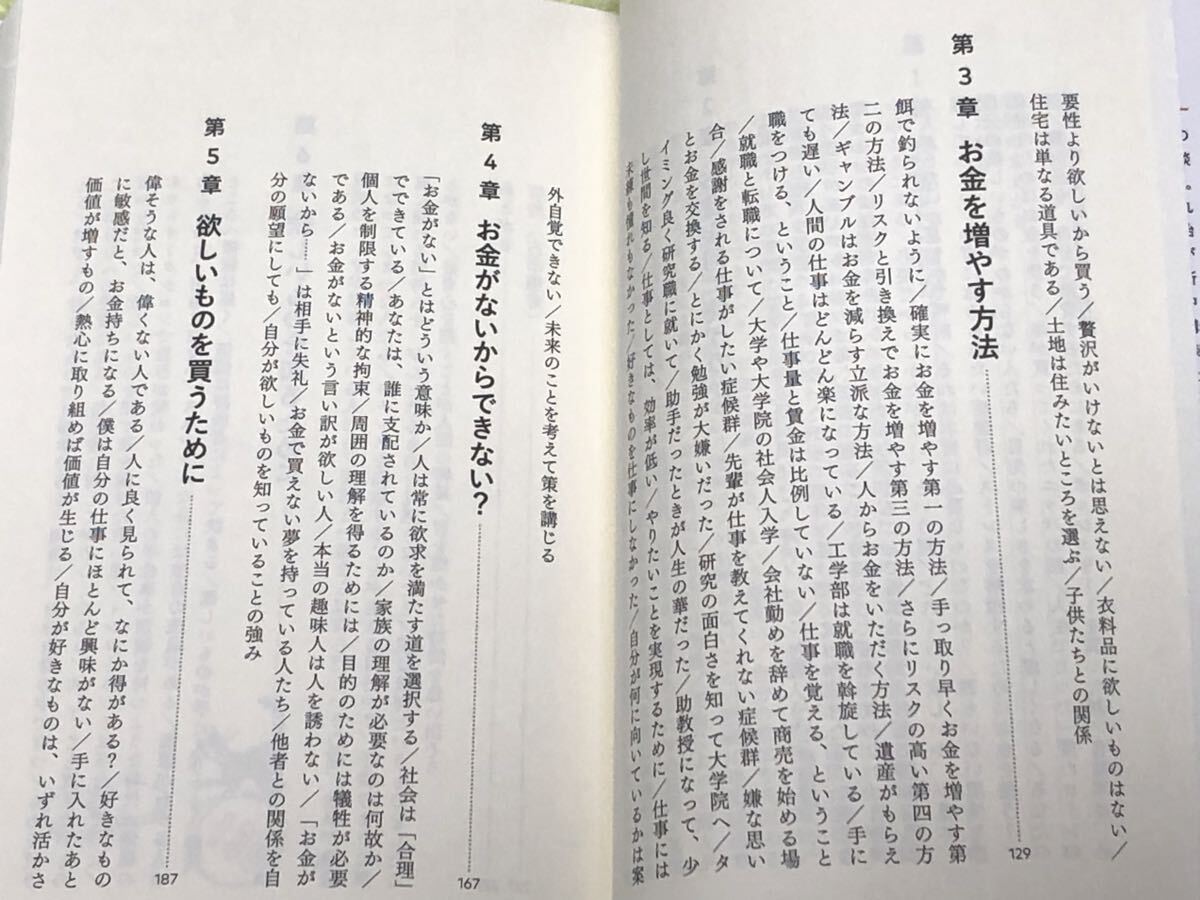 要性より欲しいから買う/贅沢がいけないとは思えない/衣料品に欲しいものはない/
住宅は単なる道具である/土地は住みたいところを選ぶ/子供たちとの関係
第3章 お金を増やす方法
129
餌で釣られないように/確実にお金を増やす第一の方法/手っ取り早くお金を増やす第
二の方法/リスクと引き換えでお金を増やす第三の方法/さらにリスクの高い第四の方
法/ギャンブルはお金を減らす立派な方法/人からお金をいただく方法/遺産がもらえ
ても遅い/人間の仕事はどんどん楽になっている/工学部は就職を斡旋している/手に
職をつける、ということ/仕事量と賃金は比例していない/仕事を覚える、ということ
/就職と転職について/大学や大学院の社会人入学/会社勤めを辞めて商売を始める場
合/感謝をされる仕事がしたい症候群/先輩が仕事を教えてくれない症候群/嫌な思い
とお金を交換する/とにかく勉強が大嫌いだった/研究の面白さを知って大学院へ/タ
イミング良く研究職に就いて/助手だったときが人生の華だった/助教授になって、少
し世間を知る/仕事としては、効率が低い/やりたいことを実現するために/仕事には
未練も憧れもなかった/好きなものを仕事にしなかった/自分が何に向いているかは案
外自覚できない/未来のことを考えて策を講じる
第4章 お金がないからできない?
167
「お金がない」とはどういう意味か/人は常に欲求を満たす道を選択する/社会は「合理」
でできている/あなたは、誰に支配されているのか/家族の理解が必要なのは何故か/
個人を制限する精神的な拘束/周囲の理解を得るためには/目的のためには犠牲が必要
である/お金がないという言い訳が欲しい人/本当の趣味人は人を誘わない/「お金が
ないから……」は相手に失礼/お金で買えない夢を持っている人たち/他者との関係を自
分の願望にしても/自分が欲しいものを知っていることの強み
第5章 欲しいものを買うために
187
偉そうな人は、偉くない人である/人に良く見られて、なにか得がある?/好きなもの
に敏感だと、お金持ちになる/僕は自分の仕事にほとんど興味がない/手に入れたあと
価値が増すもの/熱心に取り組めば価値が生じる/自分が好きなものは、いずれ活かさ